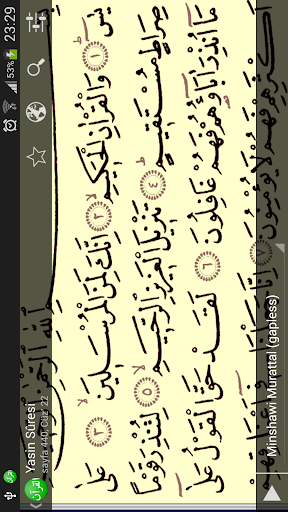 53% 23:29
Yasin Sûresi
sayfa 440, Cüz' 22
اللهِ الرَّحْمٰنِ
يٰسٓ ﴿١﴾ وَالْقُرْاٰنِ الْحَكِيمِ ﴿٢﴾ اِنَّكَ لَمِنَ الْمُرْسَلِينَ ﴿٣﴾ عَلٰى
صِرَاطٍ مُسْتَقِيمٍ ﴿٤﴾ تَنْزِيلَ الْعَزِيزِ الرَّحِيمِ ﴿٥﴾ لِتُنْذِرَ قَوْمًا
مَٓا اُنْذِرَ اٰبَٓاؤُ۬هُمْ فَهُمْ غَافِلُونَ ﴿٦﴾ لَقَدْ حَقَّ الْقَوْلُ عَلٰٓى
اَكْثَرِهِمْ فَهُمْ لَا يُؤْمِنُونَ ﴿٧﴾ اِنَّا جَعَلْنَا فِٓي اَعْنَاقِهِمْ
Minshawi Murattal (gapless)